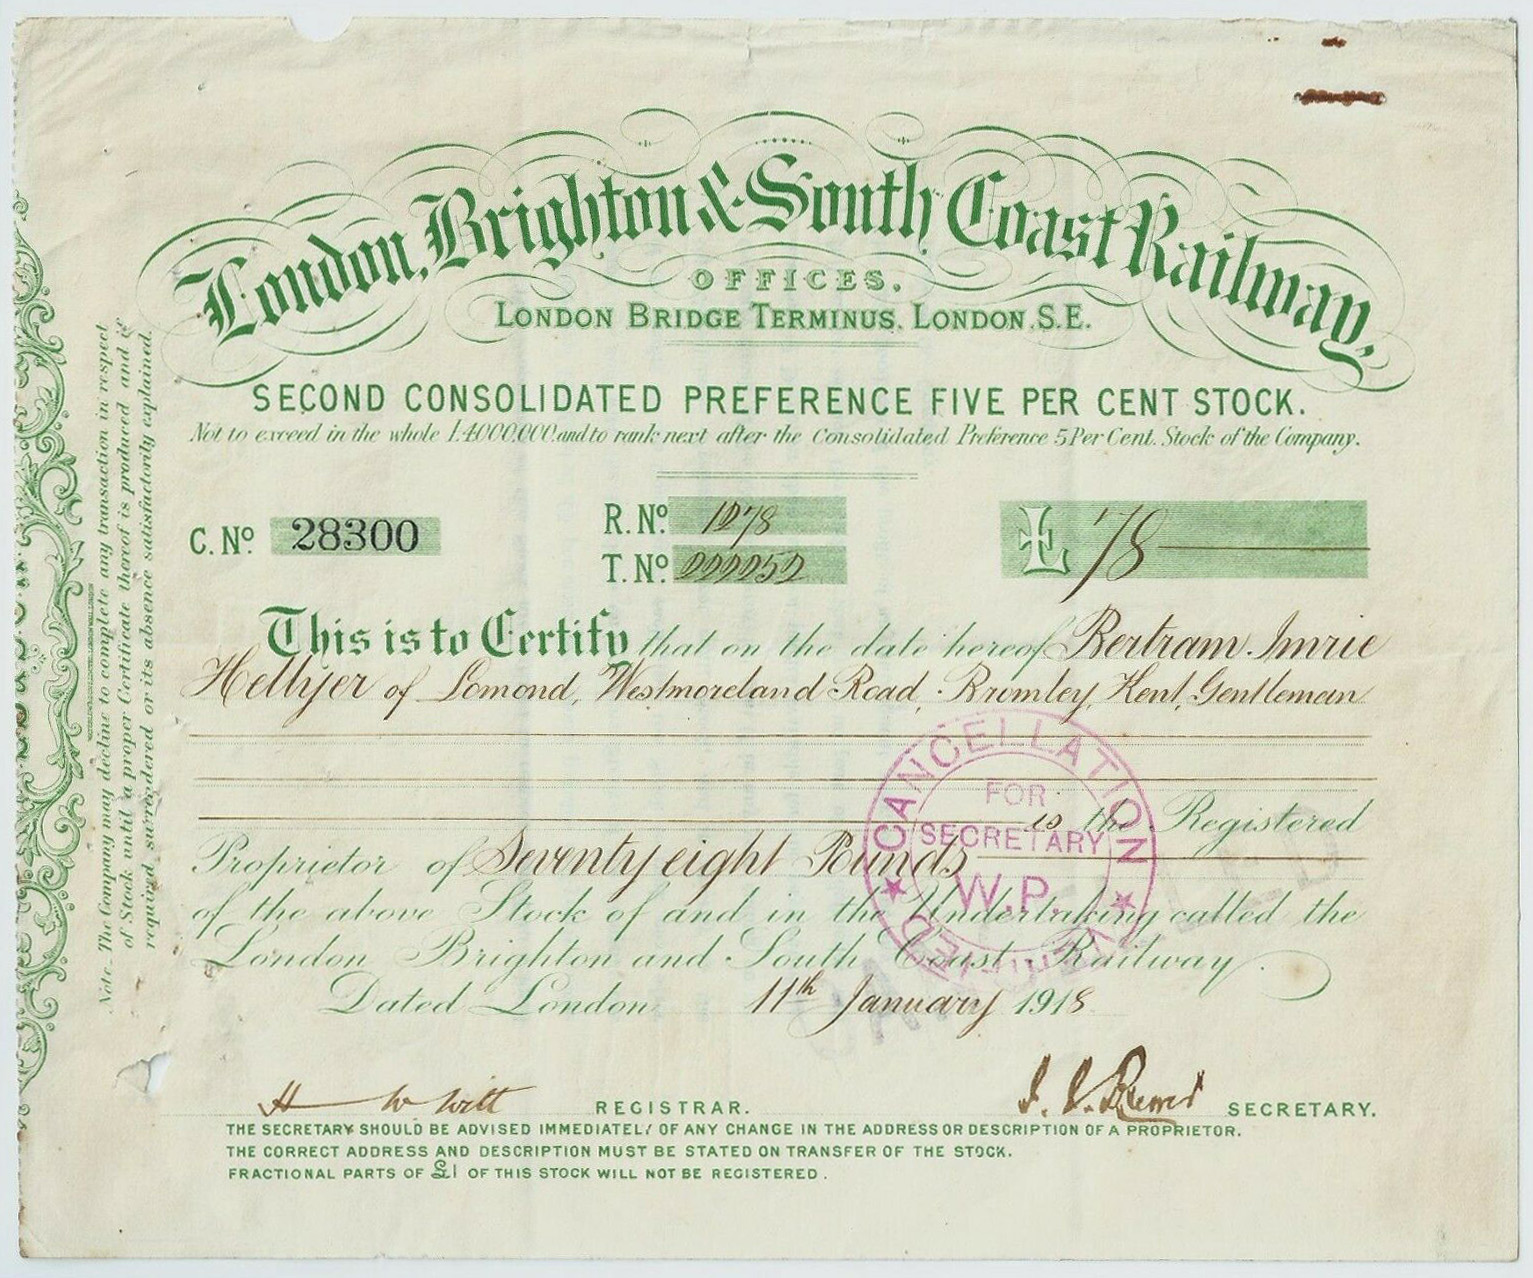 London, Brighton & South Coast Railway,
OFFICES.
LONDON BRIDGE TERMINUS. LONDON. S.E.
SECOND CONSOLIDATED PREFERENCE FIVE PER CENT STOCK.
Not to exceed in the whole £4000,000 and to rank next after the Consolidated Preference 5 Per Cent. Stock of the Company.
C. No. 28300
R. No. 1278
T. No. 222252
£ 78
This is to Certify that on the date hereof Bertram Imrie
Hellyer of Lomond, Westmoreland Road, Bromley, Kent, Gentleman
is the Registered
Proprietor of Seventy eight Pounds
of the above Stock of and in the Undertaking called the
London Brighton and South Coast Railway.
Dated London 11th January 1918
REGISTRAR.
SECRETARY.
THE SECRETARY SHOULD BE ADVISED IMMEDIATELY OF ANY CHANGE IN THE ADDRESS OR DESCRIPTION OF A PROPRIETOR.
THE CORRECT ADDRESS AND DESCRIPTION MUST BE STATED ON TRANSFER OF THE STOCK.
FRACTIONAL PARTS OF £1 OF THIS STOCK WILL NOT BE REGISTERED.
Note.- The Company may decline to complete any transaction in respect
of Stock until a proper Certificate thereof is produced and if
required, surrendered or its absence satisfactorily explained.
CANCELLATION
FOR
SECRETARY
W.P.